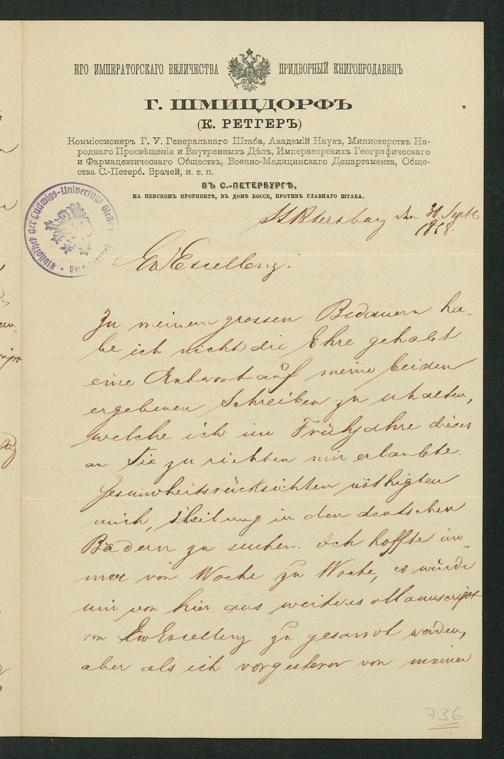 ЕГО ИМПЕРАТОРСКАГО ВЕЛИЧЕСТВА ПРИДВОРНЫЙ КНИГОПРОДАВЕЦЪ
Г. ШМИЦДОРФЪ
(К. РЕТГЕРЪ)
Коммиссіонеръ Г. У. Генеральнаго Штаба, Академій Наукъ, Министерствъ На-
роднаго Просвѣщенія и Внутреннихъ Дѣлъ, Императорскихъ Географическаго
и Фармацевтическаго Обществъ, Военно-Медицинскаго Департамента, Обще-
ства С.-Петерб. Врачей, и. т. п.
ВЪ С.-ПЕТЕРБУРГѢ,
НА НЕВСКОМЪ ПРОСПЕКТѢ, ВЪ ДОМѢ БОССЕ, ПРОТИВЪ ГЛАВНАГО ШТАБА.
St Petersburg den 30 Sept
Bibliothek der Ludwigs-Universität
Ew Excellenz.
Zu meinem grossen Bedauern ha-
be ich nicht die Ehre gehabt
eine Antwort auf meine beiden
ergebenen Schreiben zu erhalten,
welche ich im Frühjahre dieses
an Sie zu richten mir erlaubte.
Gesundheitsrücksichten nöthigten
mich, Heilung in den deutschen
Bädern zu suchen. Ich hoffte im-
mer von Woche zu Woche, es würde
mir von hier aus weiteres Manuscript
von Ew Excellenz zu gesandt werden,
aber als ich vorgestern von meiner
736